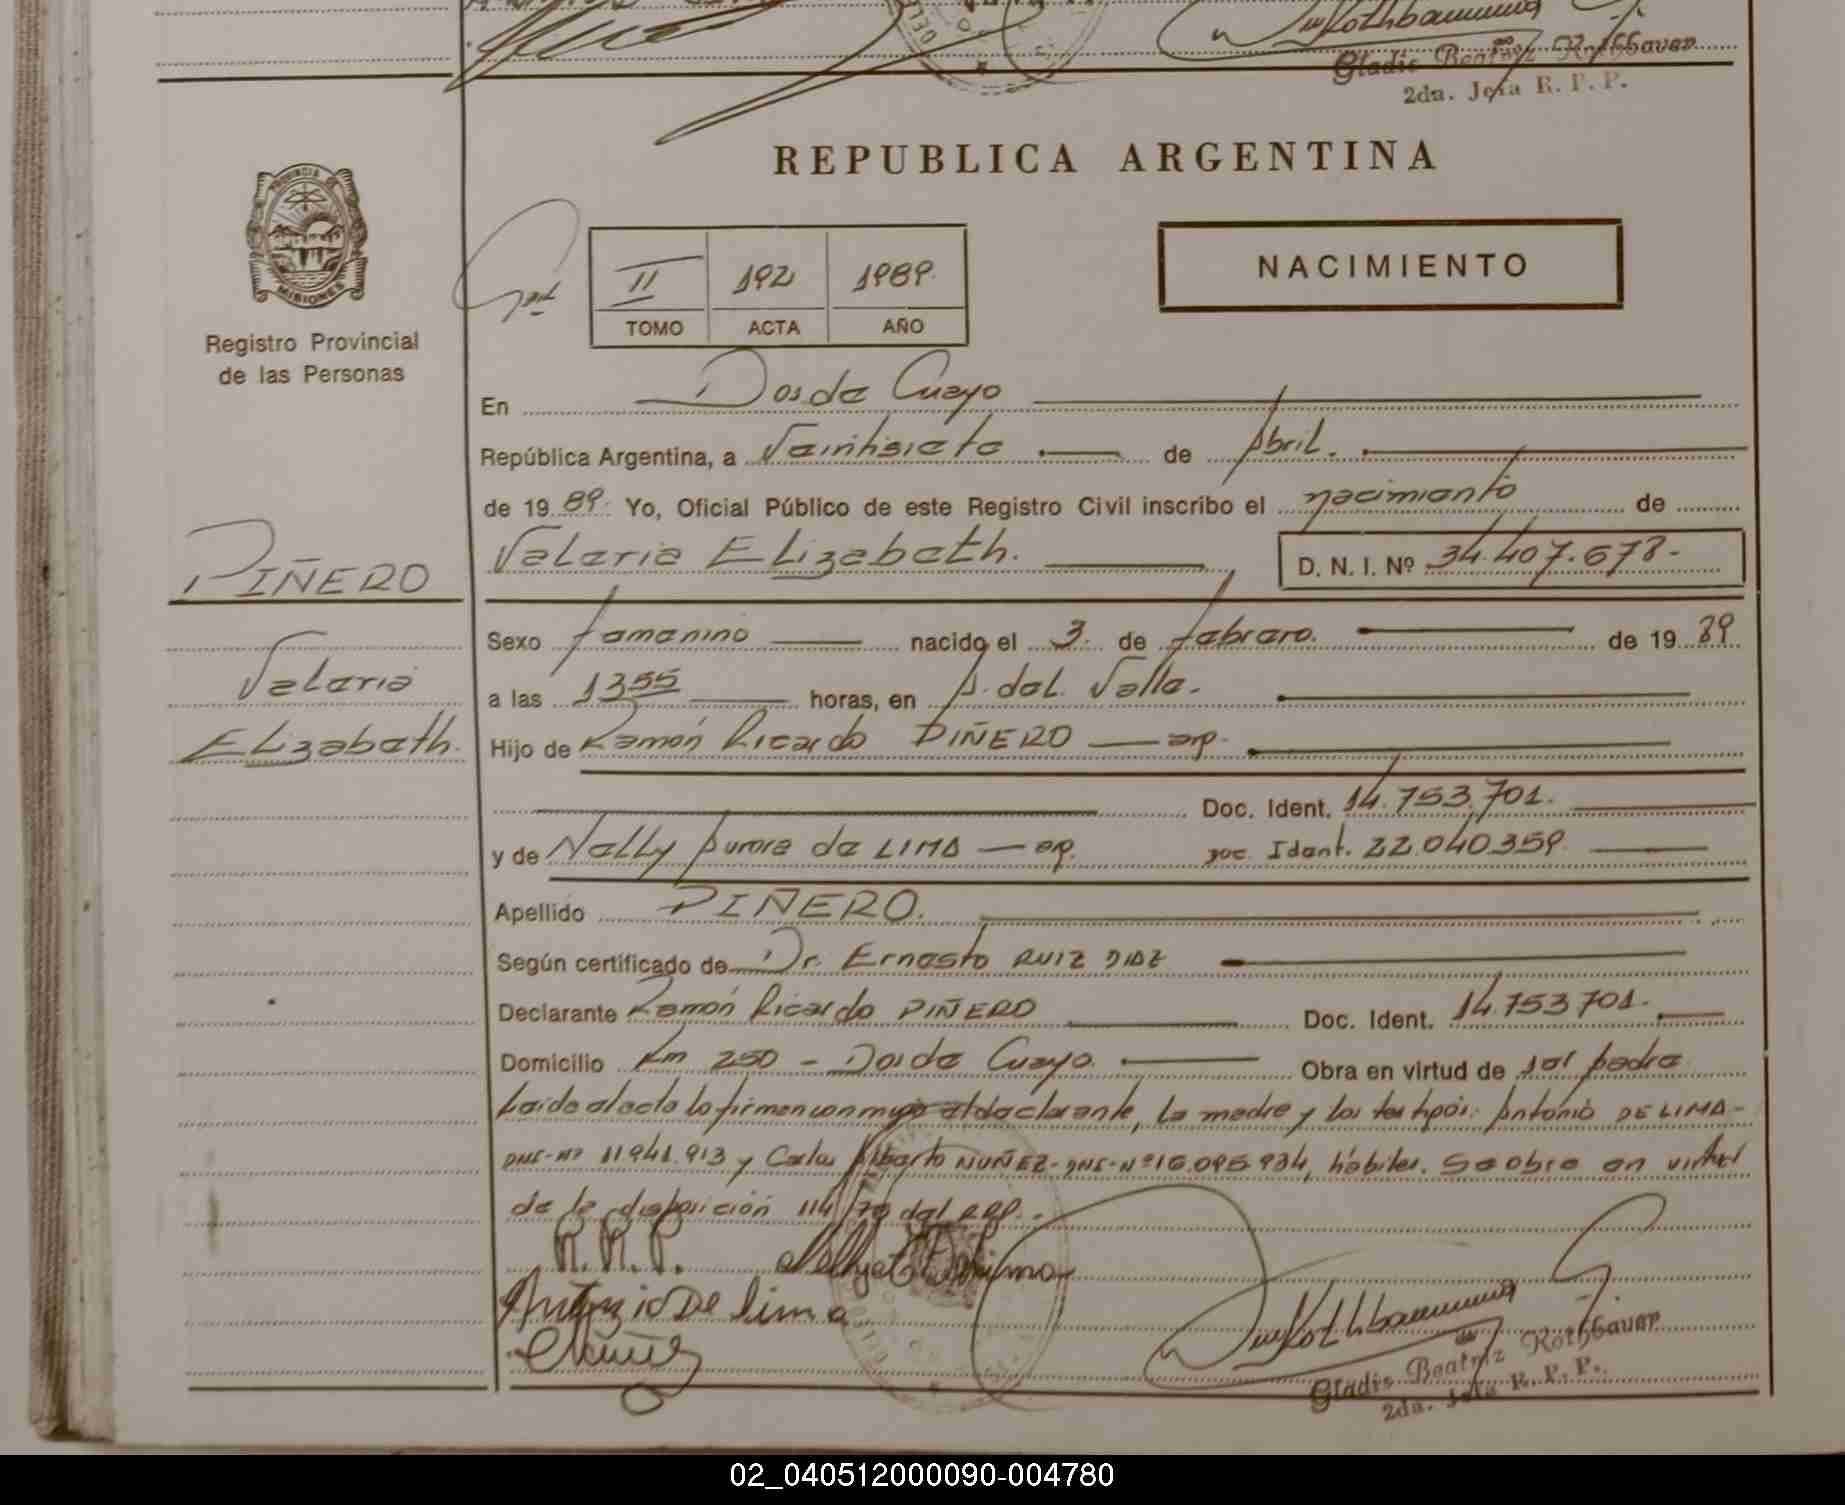 Gladis Beatriz Rothbauer
2da. Jefa R. P. P.
REPUBLICA ARGENTINA
PROVINCIA DE
MISIONES
Registro Provincial
de las Personas
II 192 1989.
TOMO ACTA AÑO
NACIMIENTO
En Dos de Mayo
República Argentina, a Veintisiete de Abril.
de 1989. Yo, Oficial Público de este Registro Civil inscribo el nacimiento de
PIÑERO
Valeria Elizabeth.
Valeria Elizabeth. D. N. I. Nº 34.407.678-
Sexo femenino nacido el 3. de febrero. de 1989
a las 13 55 horas, en A. del Valle.
Hijo de Ramón Ricardo PIÑERO — arg.
Doc. Ident. 14.753.701.
y de Nelly Aurora de LIMA — arg. Doc. Ident. 22.040.359.
Apellido PIÑERO.
Según certificado de Dr. Ernesto RUIZ DIAZ
Declarante Ramón Ricardo PIÑERO Doc. Ident. 14.753.701.
Domicilio Km 250 - Dos de Mayo. Obra en virtud de ser padre
Leído el acta lo firman conmigo el declarante, la madre y los testigos: Antonio DE LIMA-
DNI-Nº 11941.913 y Carlos Alberto NUÑEZ-DNI-Nº 16.095.934, hábiles. Se obra en virtud
de la disposición 114/79 del RPP.-
R.R.P.
Antonio De lima
Gladis Beatriz Rothbauer
2da. Jefa R. P. P.
02_040512000090-004780